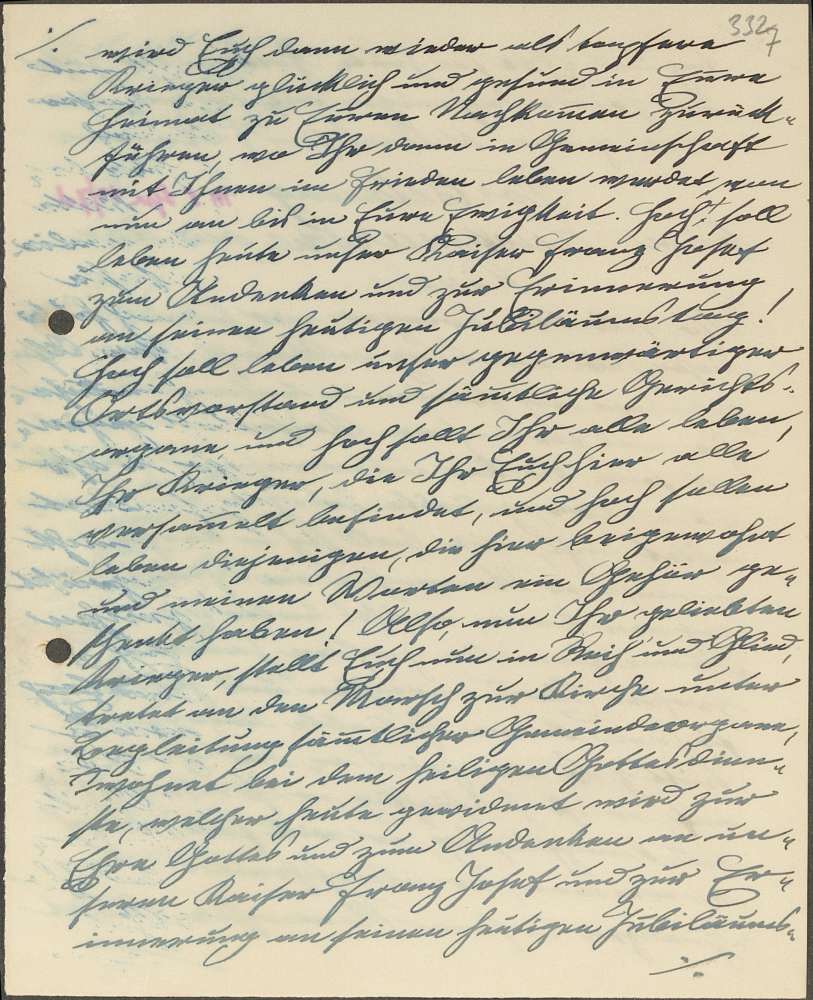 332
7
./.
wird Euch dann wieder als tapfere
Krieger glücklich und gesund in Eure
Heimat zu Euren Nachkommen zurück-
führen, wo Ihr dann in Gemeinschaft
mit Ihnen im Frieden leben werdet, von
nun an bis in Eure Ewigkeit. Hoch! soll
leben heute unser Kaiser Franz Josef
zum Andenken und zur Erinnerung
an seinen heutigen Jubiläumstag!
Hoch soll leben unser gegenwärtiger
Ortsvorstand und sämtliche Gerichts-
organe, und hoch sollt Ihr alle leben,
Ihr Krieger, die Ihr Euch hier alle
versamelt befindet, und hoch sollen
leben diejenigen, die hier beigewohnt
und meinen Worten ein Gehör ge-
schenkt haben! Also, nun Ihr geliebten
Krieger, stellt Euch nun in Reih' und Glied,
tretet an den Marsch zur Kirche unter
Begleitung sämtlicher Gemeindeorgane,
wohnet bei dem heiligen Gottesdien-
ste, welcher heute gewidmet wird zur
Ehre Gottes und zum Andenken an un-
seren Kaiser Franz Josef und zur Er-
innerung an seinen heutigen Jubiläums-
./.